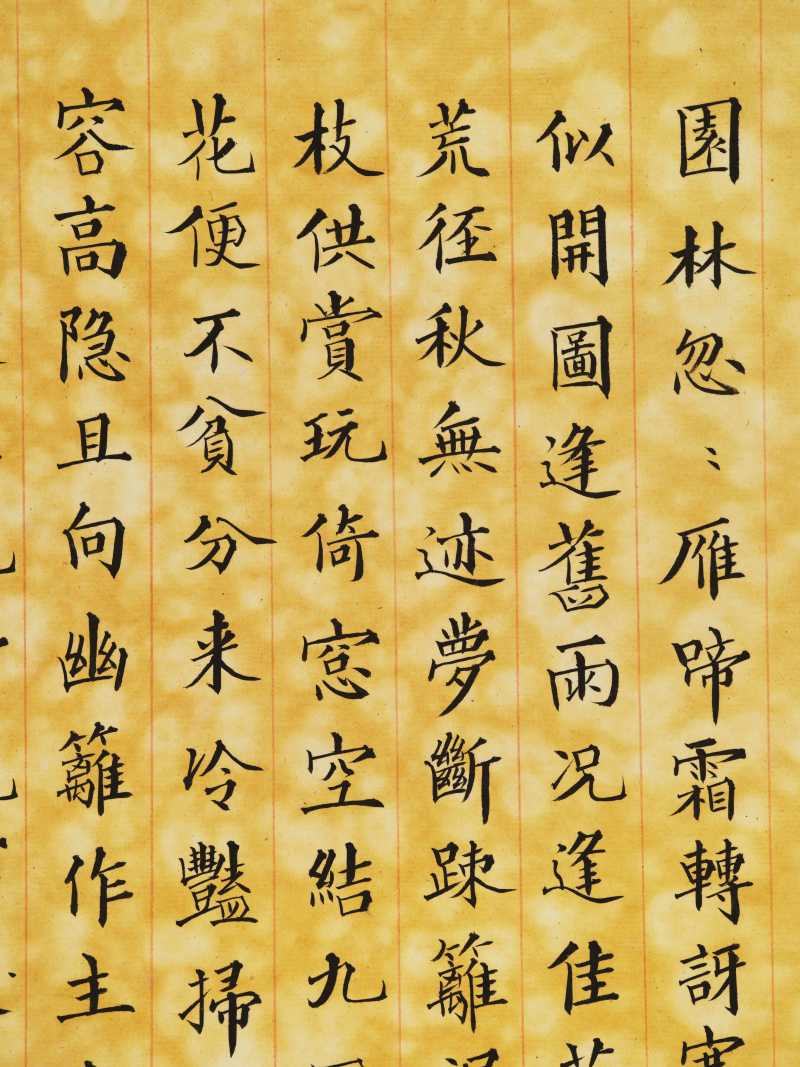 園林忽〻雁啼霜轉訝寒
似開圖逢舊雨況逢佳
荒徑秋無迹夢斷踈籬
枝供賞玩倚窓空結九
花便不貧分来冷豔掃
容高隐且向幽籬作主